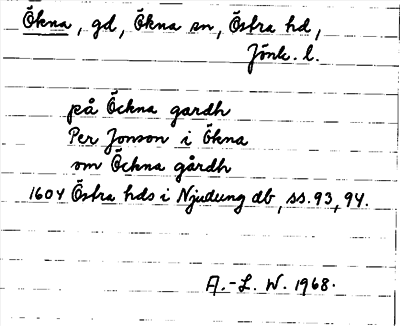 Ökna, gd, Ökna sn, Östra hd,
Jönk. l.
på Öckna gardh
Per Jonson i Ökna
om Öckna gårdh
1604 Östra hds i Njudung db, ss. 93, 94.
A.-L. W. 1968.